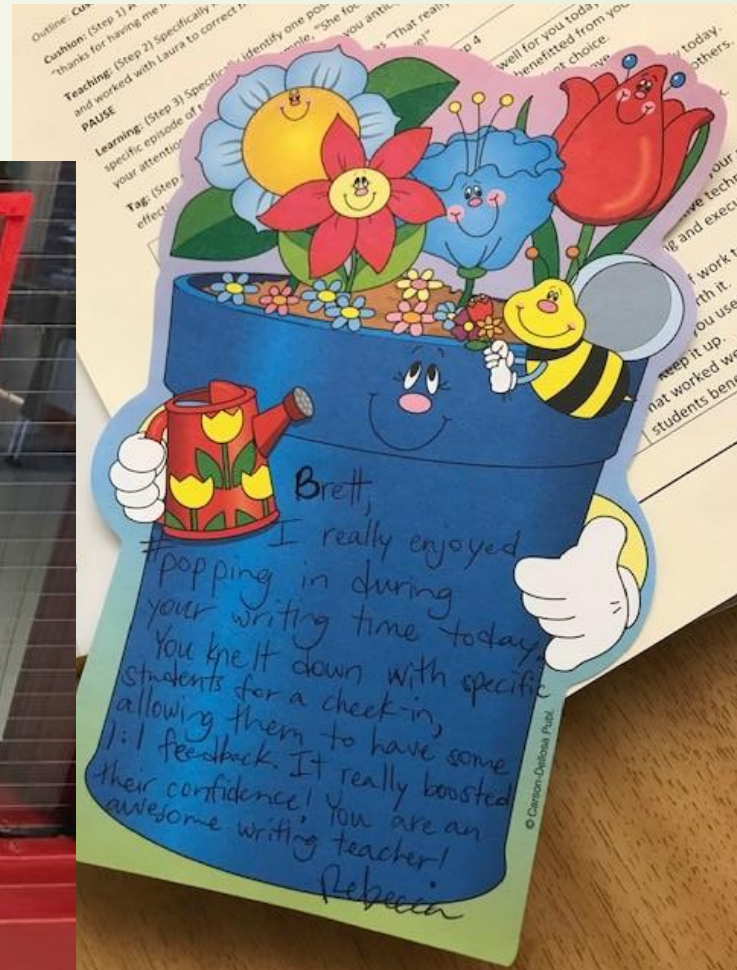 Outline: Cus
Cushion: (Step 1) A
"thanks for having me i
Teaching: (Step 2) Specifically i
and worked with Laura to correct
PAUSE
Learning: (Step 3) Specifically identify one pos
specific episode of t
your attentio
Tag: (Step
effecti
"She fo
you antic
as "That reall
4
well for you today
benefitted from you
t choice.
today.
others.
our
ve techn
g and execu
f work t
rth it.
you use
Keep it up.
hat worked we
students bene
Brett,
I really enjoyed
popping in during
your writing time today.
You knelt down with specific
students for a check-in,
allowing them to have some
1:1 feedback. It really boosted
their confidence! You are an
awesome writing teacher!
Rebecca
© Carson-Dellosa Publ.